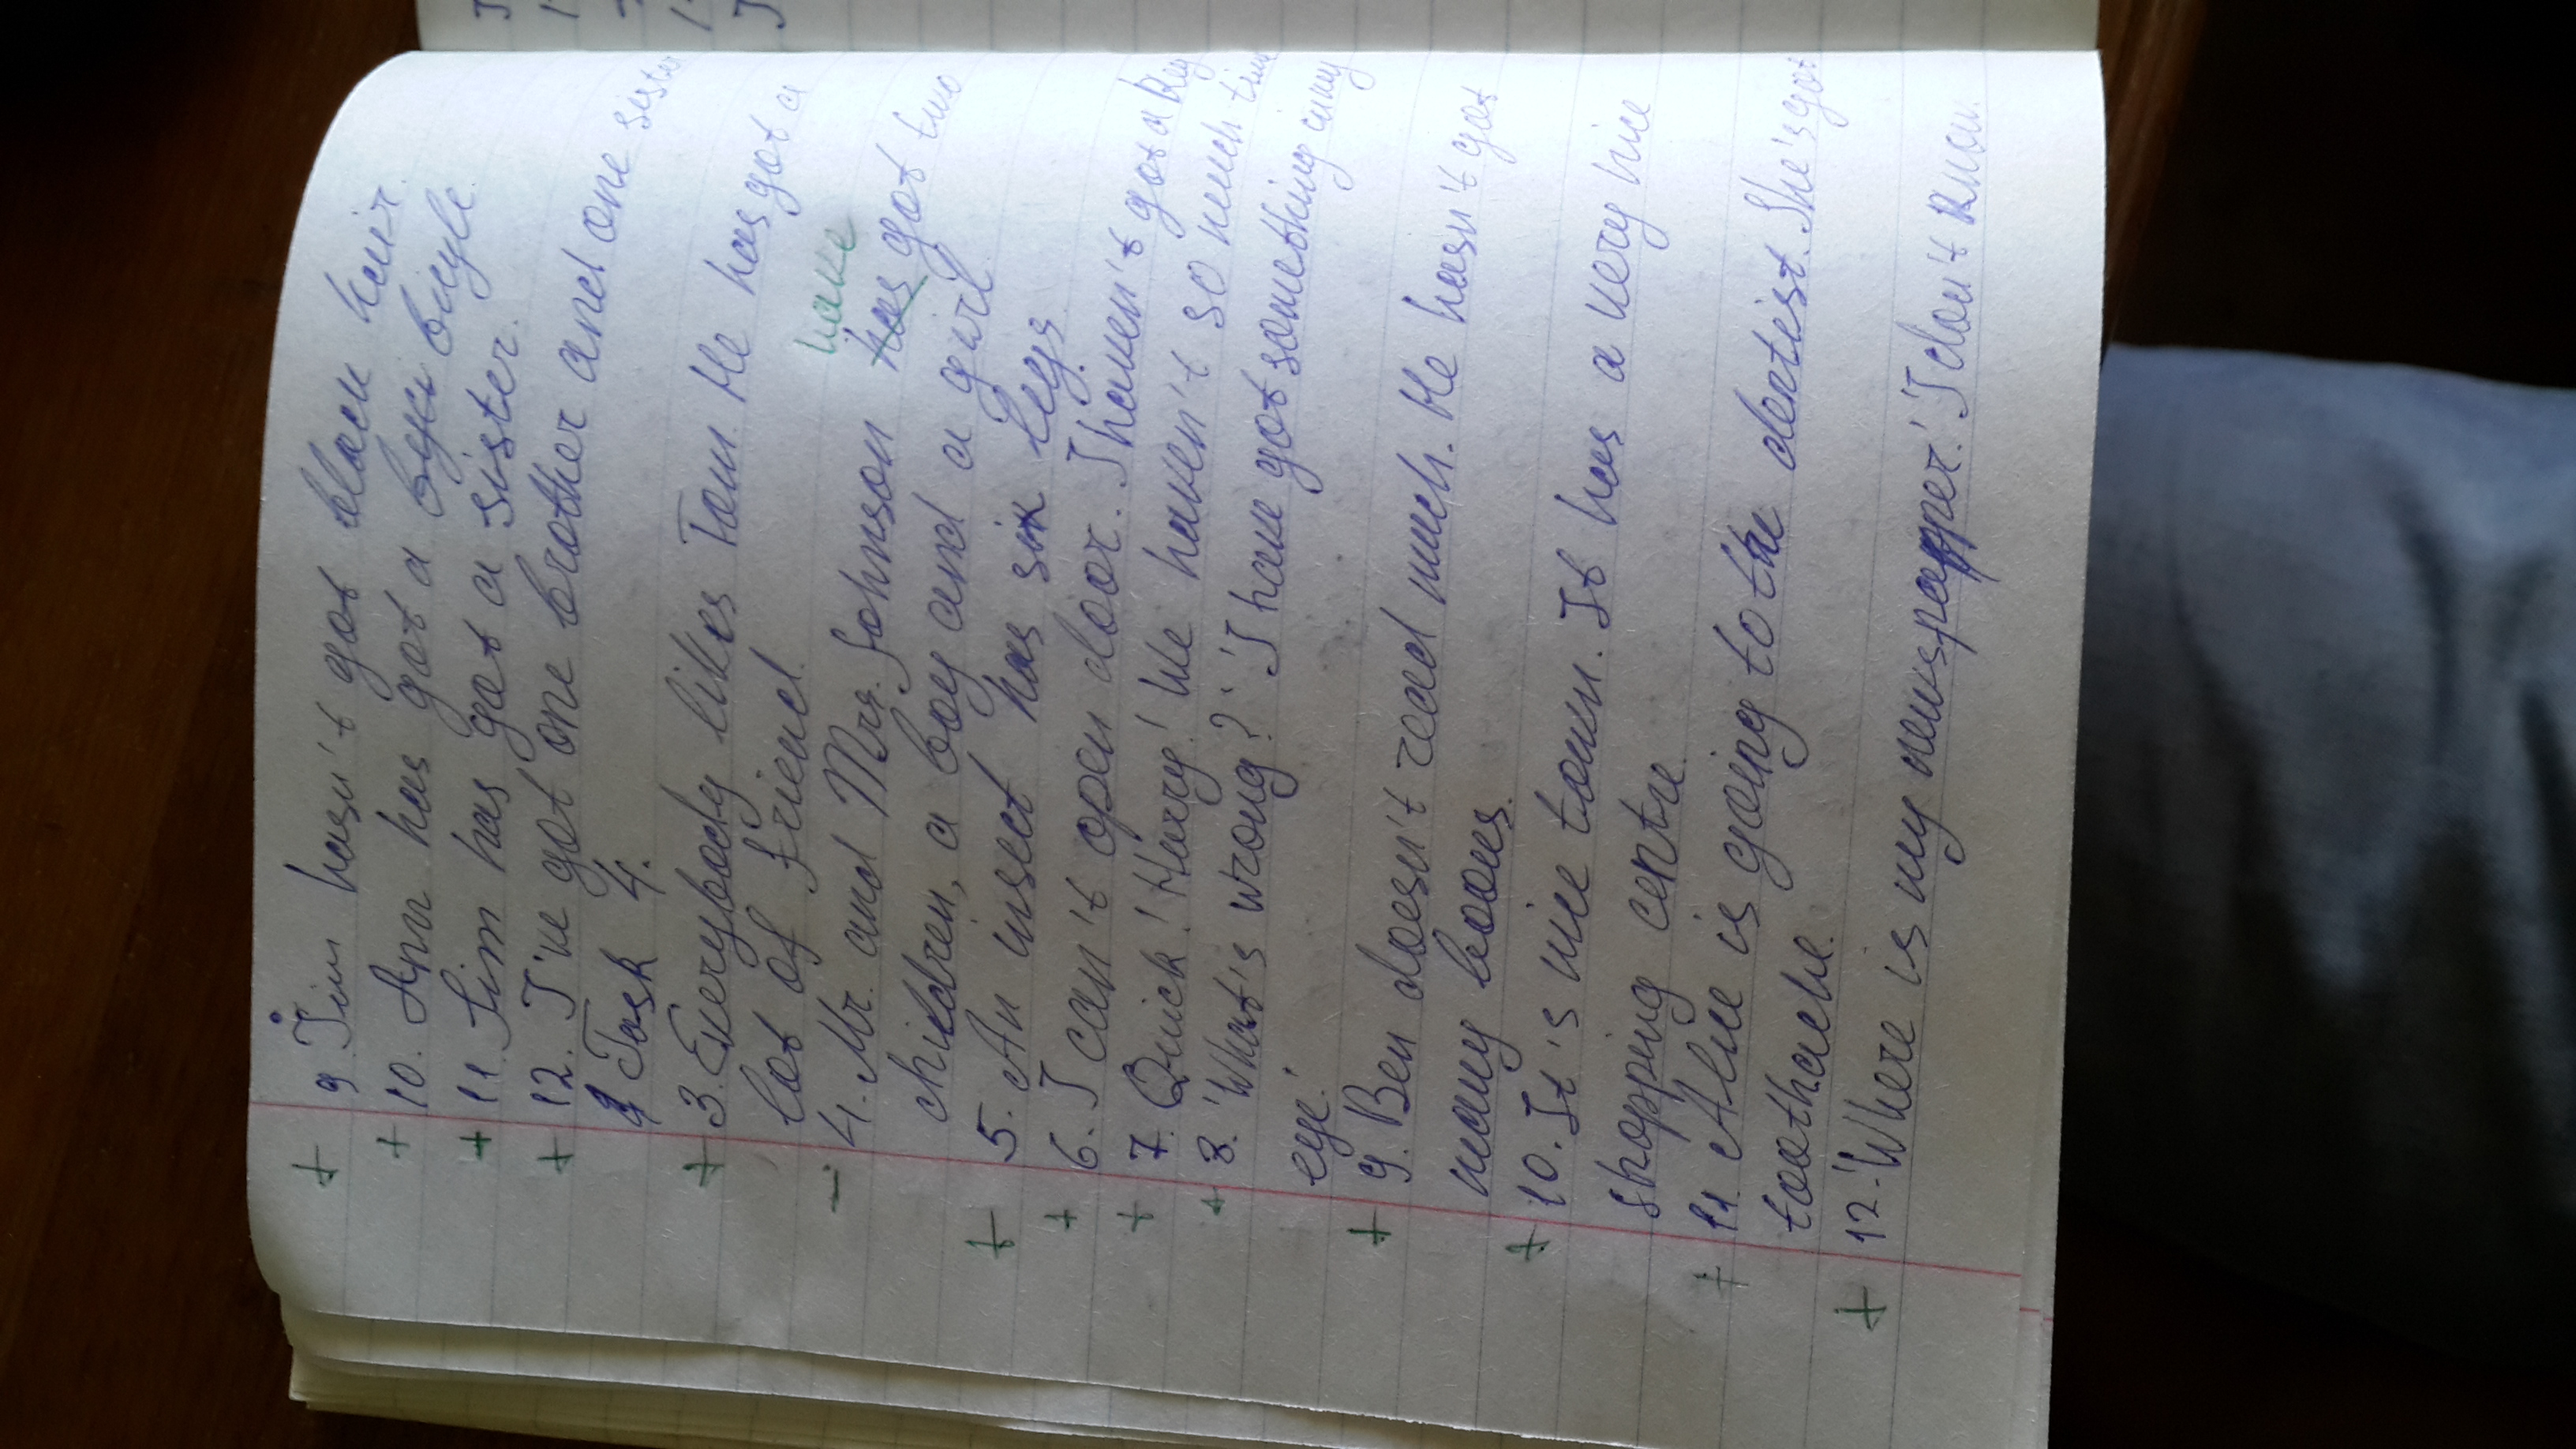 + 9 Jim hasn't got black hair.
+ 10. Ann has got a byci bicyle.
+ 11. Jim has got a sister.
+ 12. I've got one brother and one sister
Task 4.
+ 3. Everybody likes Tom. He has got a
lot of friend.
have
- 4. Mr. and Mrs. Johnson has got two
children, a boy and a girl.
+ 5. An insect has six legs.
+ 6. I can't open door. I haven't got a key
+ 7. Quick! Hurry! We haven't so much time
+ 8. 'What's wrong?' 'I have got something in my
eye.'
+ 9. Ben doesn't read much. He hasn't got
many books.
+ 10. It's nice town. It has a very nice
shopping centre.
+ 11. Alice is going to the dentist. She's got
toothache.
+ 12. 'Where is my newspapper.' 'I don't know.